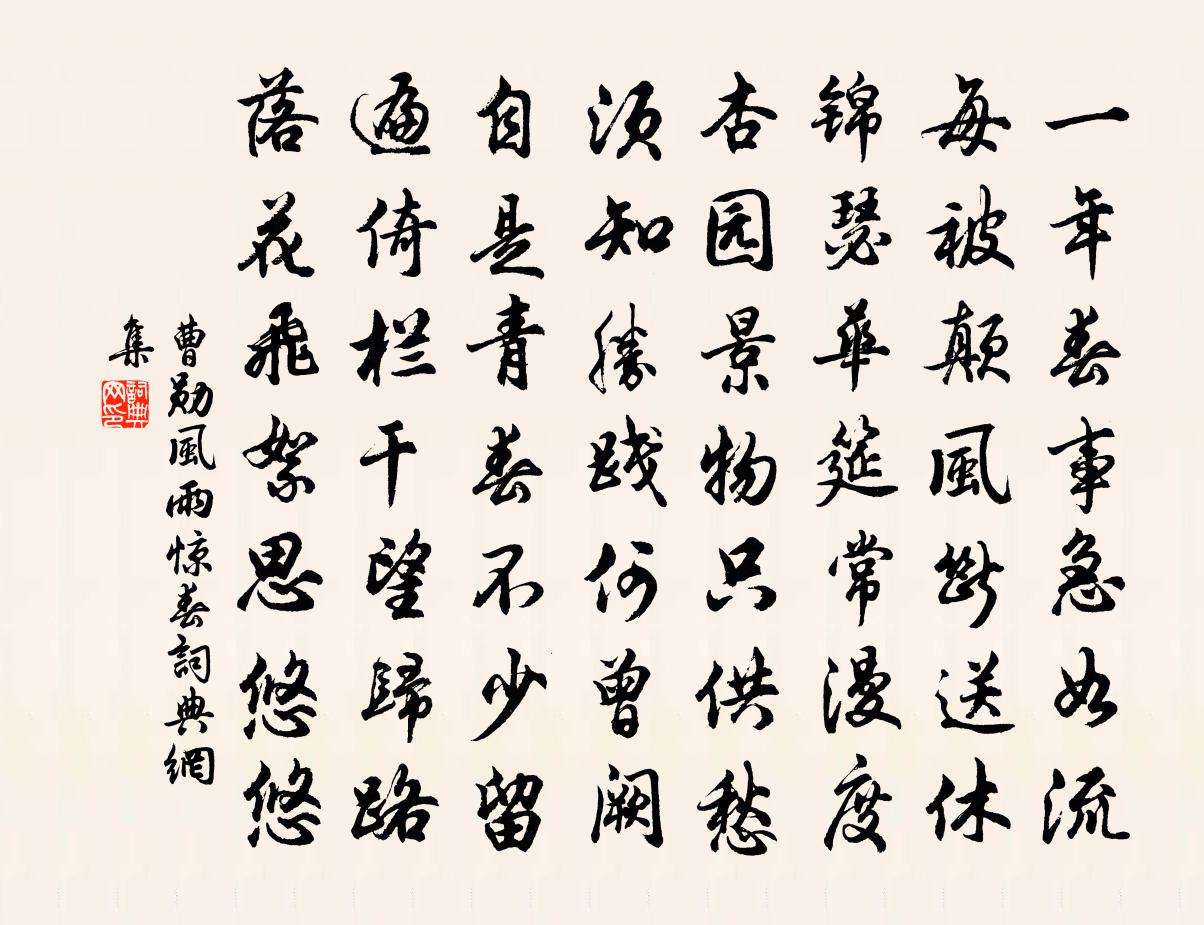 一年春事急如流
每被颠風断送休
锦瑟華筵常漫度
杏园景物只供愁
须知勝践何曾阙
自是青春不少留
遍倚栏干望歸路
落花飛絮思悠悠
曹勋風雨惊春詞典網
集
詞典网印